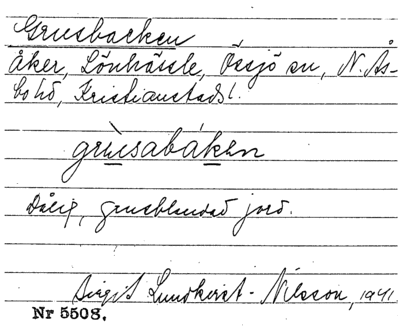 Grusbacken
Åker, Lönhässle, Össjö sn, N. Ås-
bo hd, Kristianstads l.
grùsabáken
Dålig, grusblandad jord.
Birgit Lundkvist-Nilsson, 1941
Nr 5508.